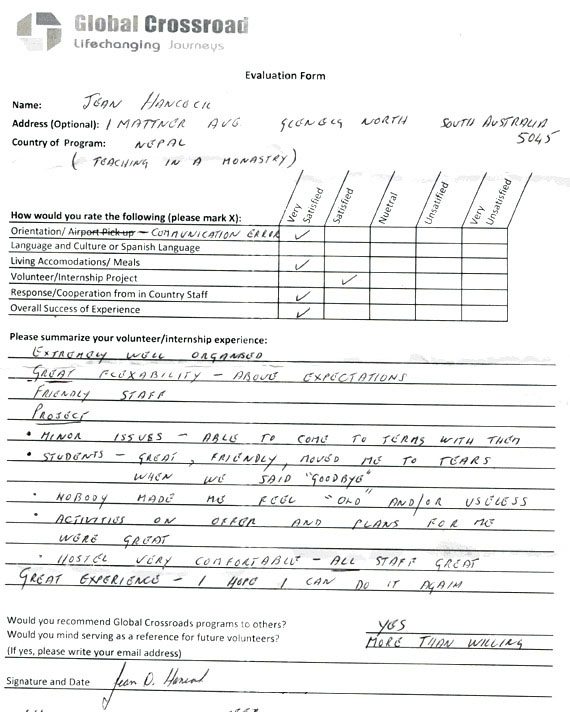 Global Crossroad
Lifechanging Journeys
Evaluation Form
Name: JEAN HANCOCK
Address (Optional): 1 MATTNER AVE GLENELG NORTH SOUTH AUSTRALIA
5045
Country of Program: NEPAL
(TEACHING IN A MONASTRY)
How would you rate the following (please mark X): Very Satisfied Satisfied Nuetral Unsatified Very Unsatisfied
Orientation/ Airport Pick up - COMMUNICATION ERROR ✓
Language and Culture or Spanish Language
Living Accomodations/ Meals ✓
Volunteer/Internship Project ✓
Response/Cooperation from in Country Staff ✓
Overall Success of Experience ✓
Please summarize your volunteer/internship experience:
EXTREMELY WELL ORGANISED
GREAT FLEXABILITY - ABOVE EXPECTATIONS
FRIENDLY STAFF
PROJECT
• MINOR ISSUES - ABLE TO COME TO TERMS WITH THEM
• STUDENTS - GREAT, FRIENDLY, MOVED ME TO TEARS
WHEN WE SAID "GOODBYE"
• NOBODY MADE ME FEEL "OLD" AND/OR USELESS
• ACTIVITIES ON OFFER AND PLANS FOR ME
WERE GREAT
• HOSTEL VERY COMFORTABLE - ALL STAFF GREAT
GREAT EXPERIENCE - I HOPE I CAN DO IT AGAIN
Would you recommend Global Crossroads programs to others? YES
Would you mind serving as a reference for future volunteers? MORE THAN WILLING
(If yes, please write your email address)
Signature and Date Jean D. Hancock